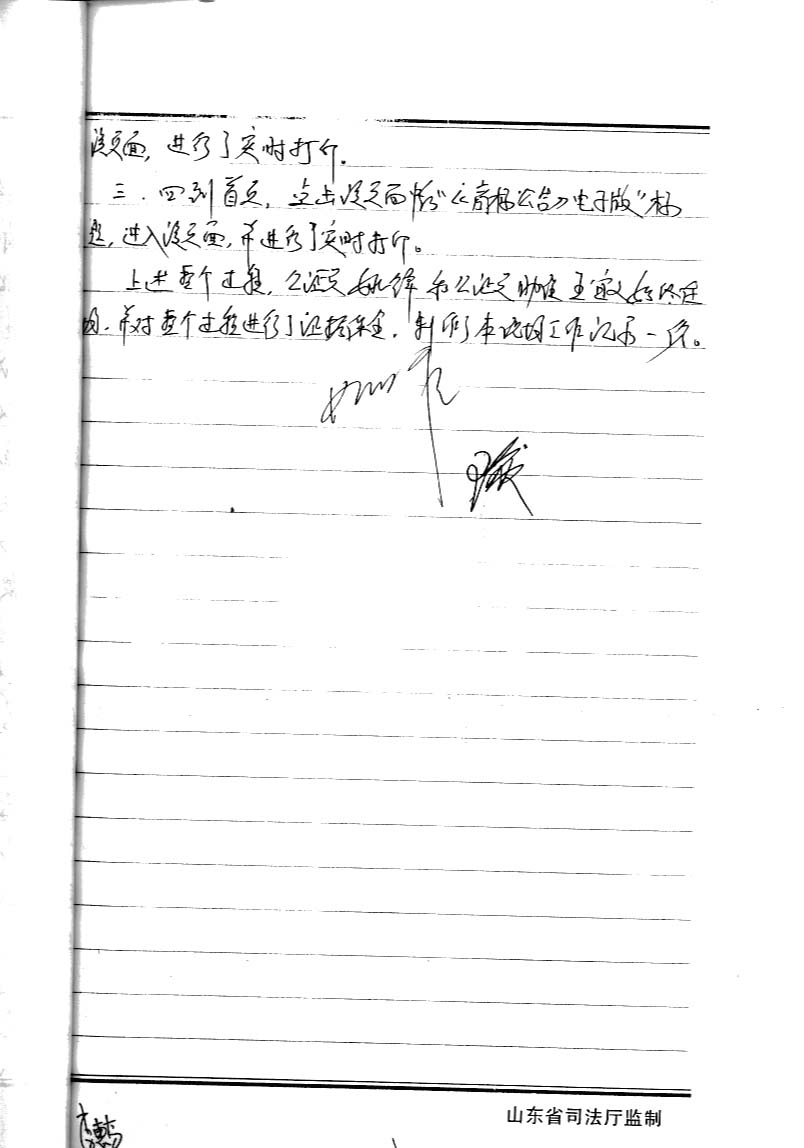 该页面，进行了实时打印。
三、回到首页，点击该页面中"《商标公告》电子版"标
题，进入该页面，并进行了实时打印。
上述整个过程，公证员 和公证员助理王敏始终在
场，并对整个过程进行了证据保全，制作了本现场工作记录一份。
山东省司法厅监制